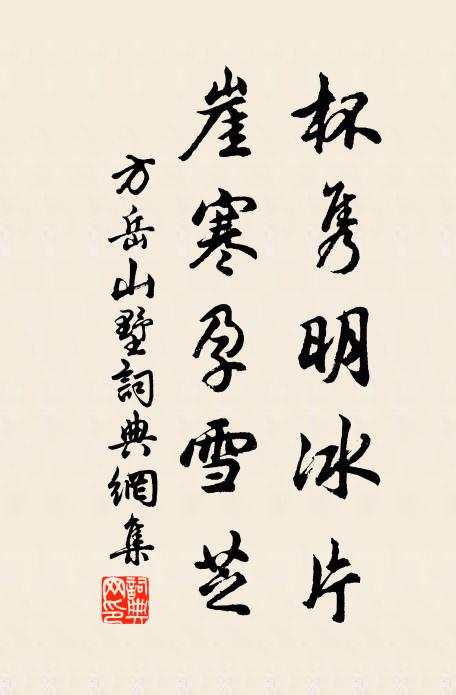 杯隽明冰片
崖寒孕雪芝
方岳山墅詞典網集
詞典